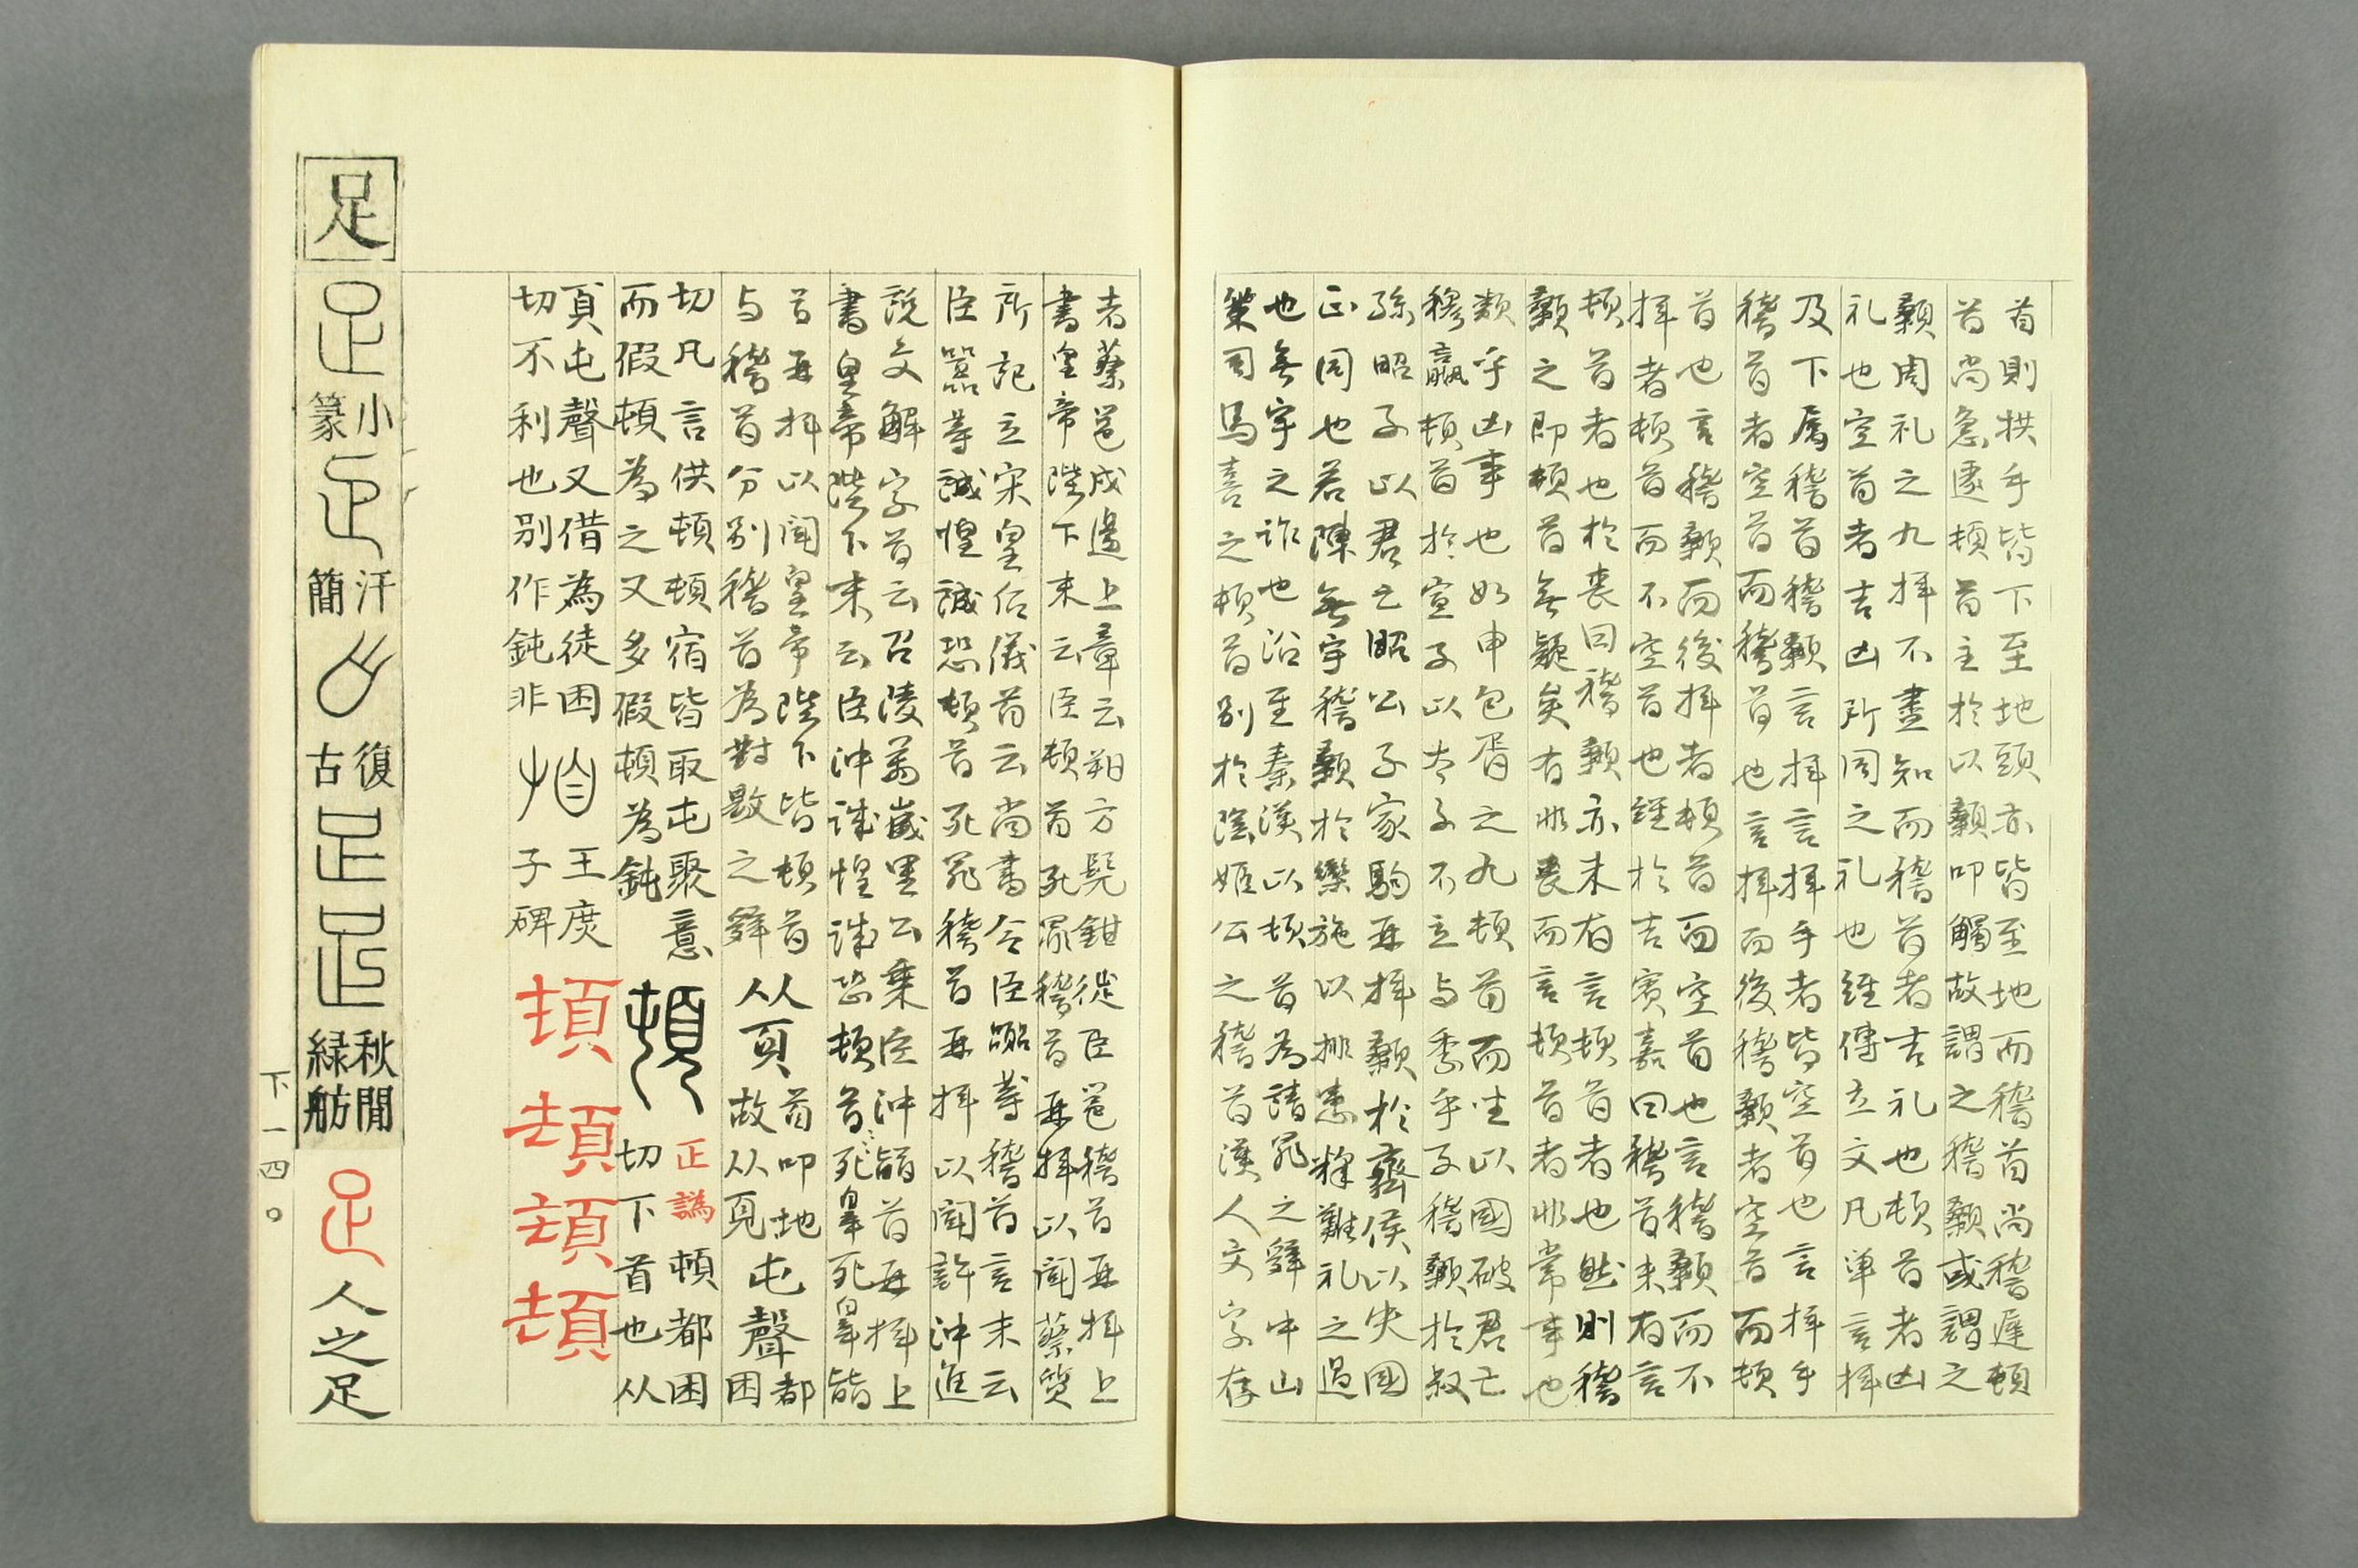 首則拱手皆下至地頭亦皆至地而稽首尚稽遲頓
首尚急遽頓首主於以顙叩觸故謂之稽顙或謂之
顙周礼之九拝不盡知而稽首者吉礼也頓首者凶
礼也空首者吉凶所同之礼也經傳立文凡単言拝
及下属稽首稽顙言拝言拝手者皆空首也言拝手
稽首者空首而稽首也言拝而後稽顙者空首而頓
首也言稽顙而後拝者頓首而空首也言稽顙而不
拝者頓首而不空首也經於吉賓嘉曰稽首未有言
頓首者也於喪曰稽顙亦未有言頓首者也然則稽
顙之即頓首無疑矣有非喪而言頓首者非常事也
類乎凶事也如申包胥之九頓首而坐以國破君亡
穆嬴頓首於宣子以太子不立与季平子稽顙於叔
孫昭子以君亡昭公子家駒再拝顙於齊侯以失國
正同也若陳無宇稽顙於欒施以排患釋難礼之過
也無宇之詐也沿至秦漢以頓首為請罪之辤中山
策司馬喜之頓首別於陰姫公之稽首漢人文字存
者蔡邕戍邊上章云朔方髡鉗徙臣邕稽首再拝上
書皇帝陛下末云臣頓首死罪稽首再拝以聞蔡質
所記立宋皇后儀首云尚書令臣嚻等稽首言末云
臣嚻等誠惶誠恐頓首死罪稽首再拝以聞許沖進
說文解字首云召陵萬歳里公乗臣沖䭫首再拝上
書皇帝陛下末云臣沖誠惶誠恐頓首死辠死辠䭫
首再拝以聞皇帝陛下皆頓首
与稽首分別稽首為對敭之辤
从頁
首叩地
故从頁
屯聲
都困
切凡言供頓頓宿皆取屯聚意
而假頓為之又多假頓為鈍
正譌
頓都困
切下首也从
頁屯聲又借為徒困
切不利也別作鈍非
王庶
子碑
頓
頓
頓
頓
足
小篆
汗簡
復古
秋閒緑舫
足
人之足
下一四〇